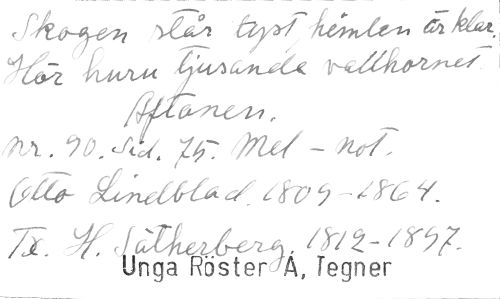 Skogen står tyst, himlen är klar.
Hör huru tjusande vallhornet
Aftonen.
nr. 90. Sid. 75. Mel – not.
Otto Lindblad. 1809–1864.
Tx. H. Sätherberg. 1812–1897.
Unga Röster A, Tegner